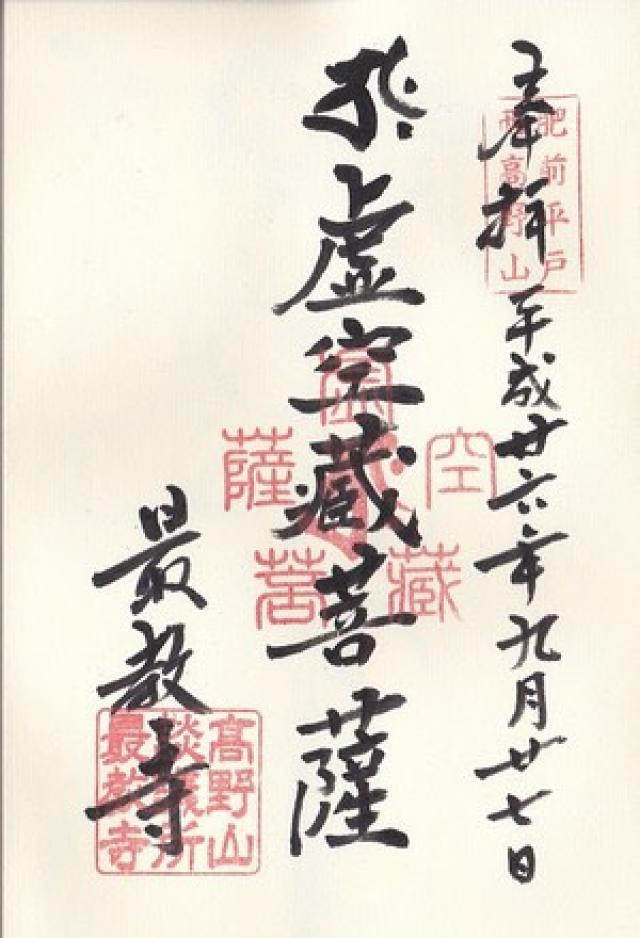 肥前平戸
西高野山
奉拝 平成廿六年九月廿七日
虚空藏菩薩
虚空藏菩薩
最教寺
高野山
談議所
最教寺